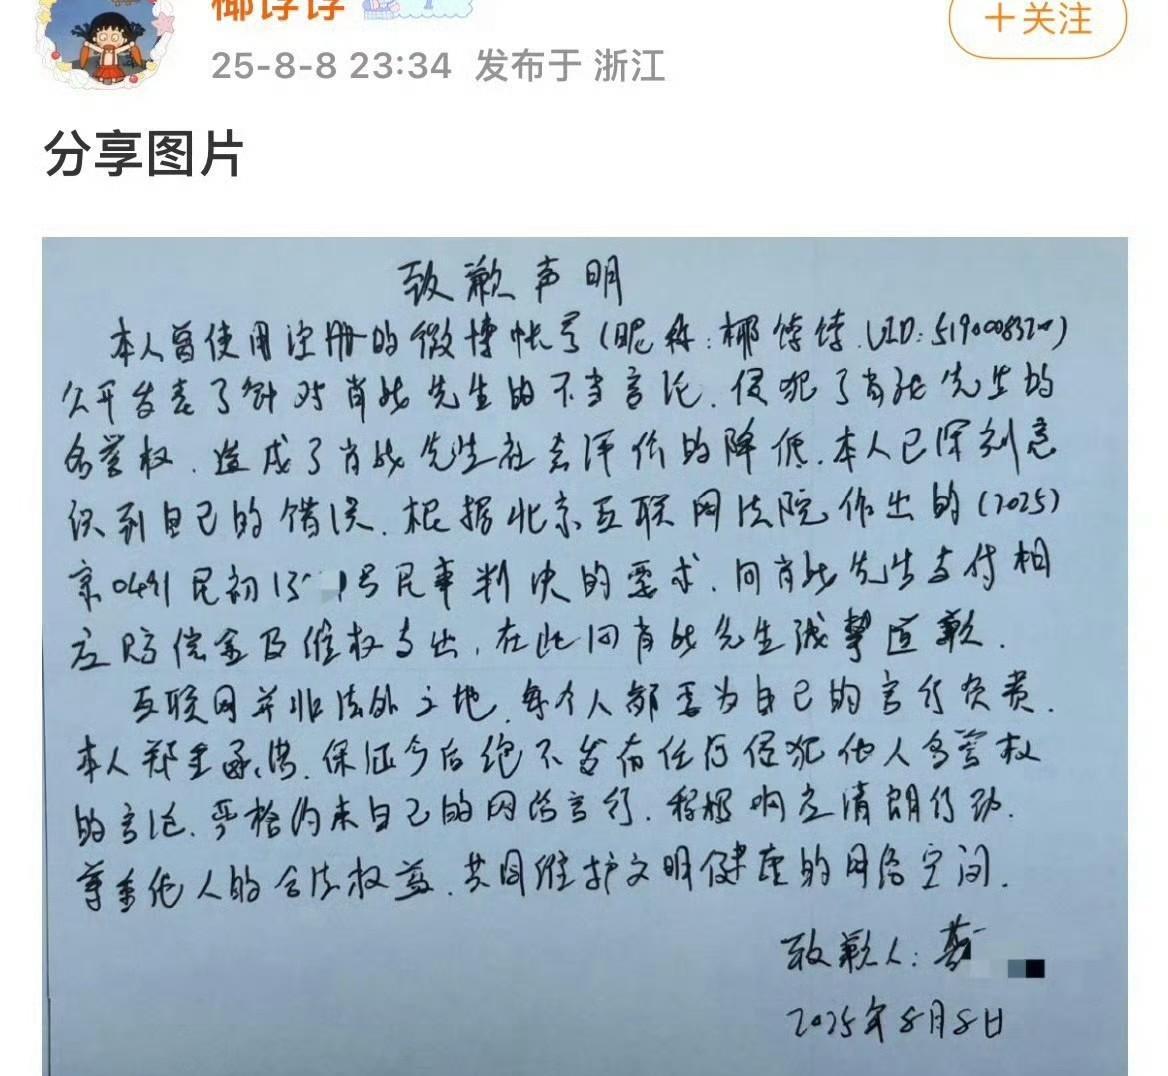 椰饽饽
+关注
25-8-8 23:34 发布于 浙江
分享图片
致歉声明
本人曾使用注册的微博帐号(昵称:椰饽饽.UID:
公开发表了针对肖战先生的不当言论,侵犯了肖战先生的
名誉权,造成了肖战先生社会评价的降低.本人已深刻意
识到自己的错误.根据北京互联网法院作出的(2025)
京0491民初 号民事判决的要求,向肖战先生支付相
应赔偿金及维权支出,在此向肖战先生诚挚道歉.
互联网并非法外之地,每个人都要为自己的言行负责.
本人郑重承诺,保证今后绝不发布任何侵犯他人名誉权
的言论,严格约束自己的网络言行,积极响应清朗行动.
尊重他人的合法权益,共同维护文明健康的网络空间.
致歉人:
2025年8月8日